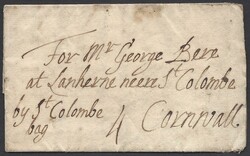 For Mr George Bere
at Lanherne neere St Colombe
by St Colombe
bag
4 Cornwall.